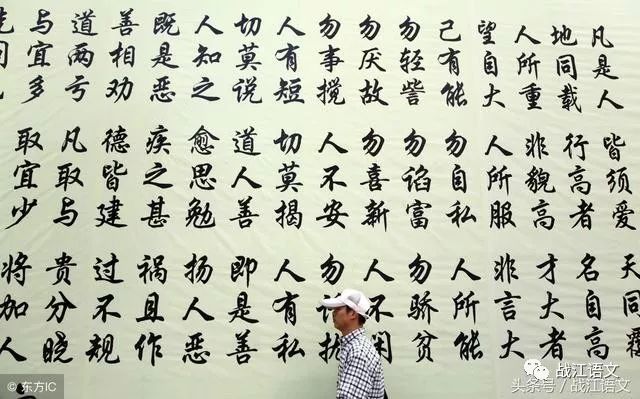 凡是人皆须爱天同覆
地同载行高者名自高
人所重非貌高才大者
望自大人所服非言大
己有能勿自私人所能
勿轻訾勿谄富勿骄贫
勿厌故勿喜新人不闲
勿事搅人不安勿扰
人有短切莫揭人有私
切莫说道人善即是善
人知之愈思勉扬人恶
既是恶疾之甚祸且作
善相劝德皆建过不规
道两亏凡取与贵分晓
与宜多取宜少将加人
© 东方IC
战江语文
头条号 / 战江语文